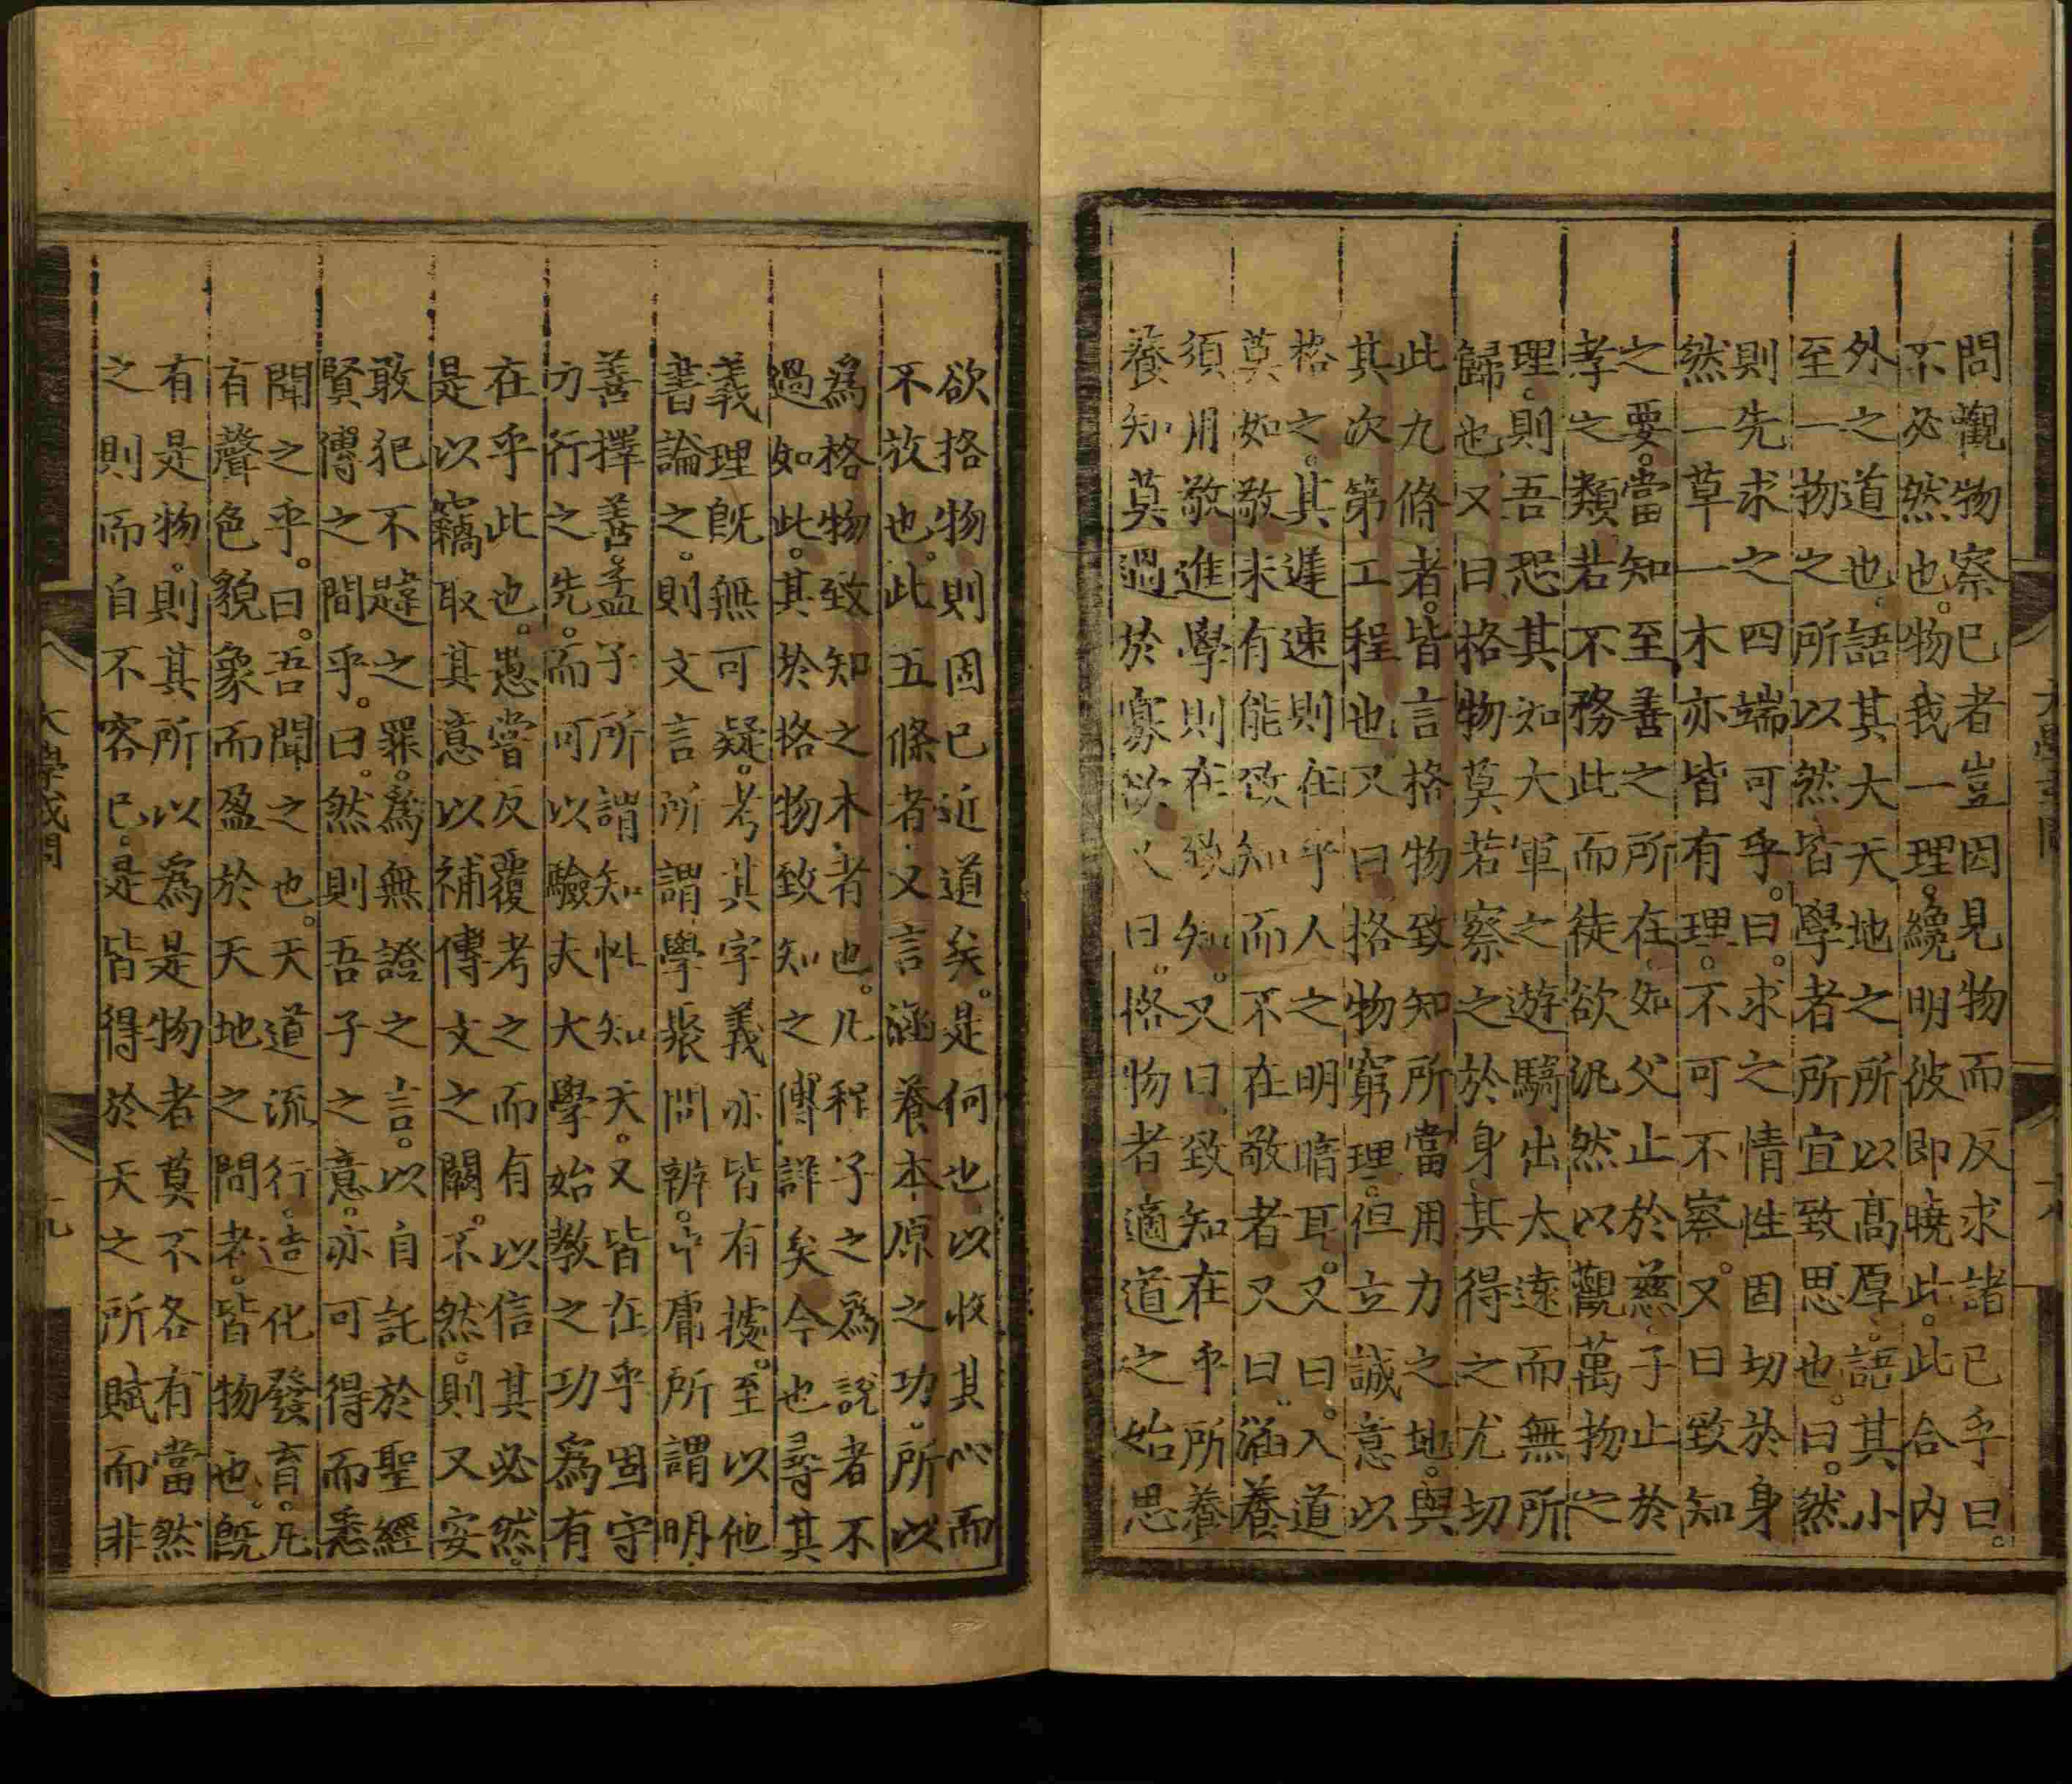 問觀物察己者豈因見物而反求諸己乎曰
不必然也物我一理纔明彼即曉此此合内
外之道也語其大天地之所以高厚語其小
至一物之所以然皆學者所宜致思也曰然
則先求之四端可乎曰求之情性固切於身
然一草一木亦皆有理不可不察又曰致知
之要當知至善之所在如父止於慈子止於
孝之類若不務此而徒欲汎然以觀萬物之
理則吾恐其如大軍之遊騎出太遠而無所
歸也又曰格物莫若察之於身其得之尤切
此九條者皆言格物致知所當用力之地與
其次第工程也又曰格物窮理但立誠意以
格之其遲速則在乎人之明暗耳又曰入道
莫如敬未有能致知而不在敬者又曰涵養
須用敬進學則在致知又曰致知在乎所養
養知莫過於寡欲又曰格物者適道之始思
欲格物則固已近道矣是何也以收其心而
不放也此五條者又言涵養本原之功所以
爲格物致知之本者也凡程子之爲說者不
過如此其於格物致知之傳詳矣今也尋其
義理既無可疑考其字義亦皆有據至以他
書論之則文言所謂學聚問辨中庸所謂明
善擇善孟子所謂知性知天又皆在乎固守
力行之先而可以驗夫大學始教之功爲有
在乎此也愚嘗反覆考之而有以信其必然
是以竊取其意以補傳文之闕不然則又安
敢犯不韙之罪爲無證之言以自託於聖經
賢傳之間乎曰然則吾子之意亦可得而悉
聞之乎曰吾聞之也天道流行造化發育凡
有聲色貌象而盈於天地之間者皆物也既
有是物則其所以爲是物者莫不各有當然
之則而自不容已是皆得於天之所賦而非
大學或問